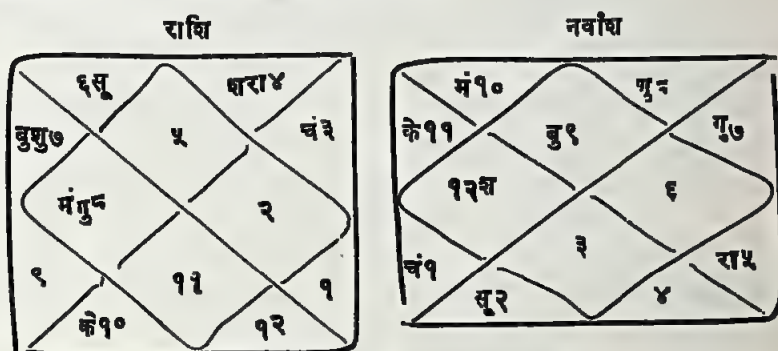 राशि
६सू शरा४
बुशु७ ५ चं३
मंगु८ २
९ ११ १
के१० १२
नवांश
मं१० गु८
के११ बु९ गु७
१२श ६
चं१ ३ रा५
सू२ ४